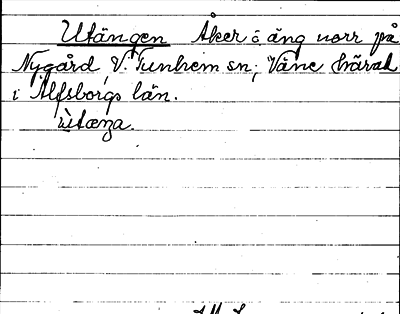 Utängen Åker o. äng norr på
Nygård, V. Tunhem sn, Väne härad
i Älfsborgs län.